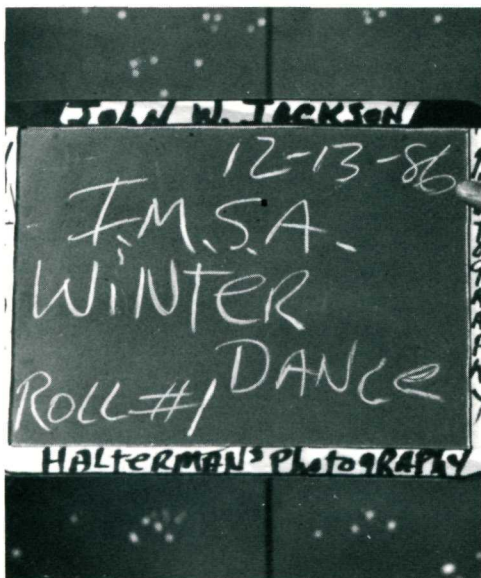 JOHN W. JACKSON
12-13-86
I.M.S.A.
WINTER
DANCE
ROLL #1
HALTERMAN'S PHOTOGRAPHY